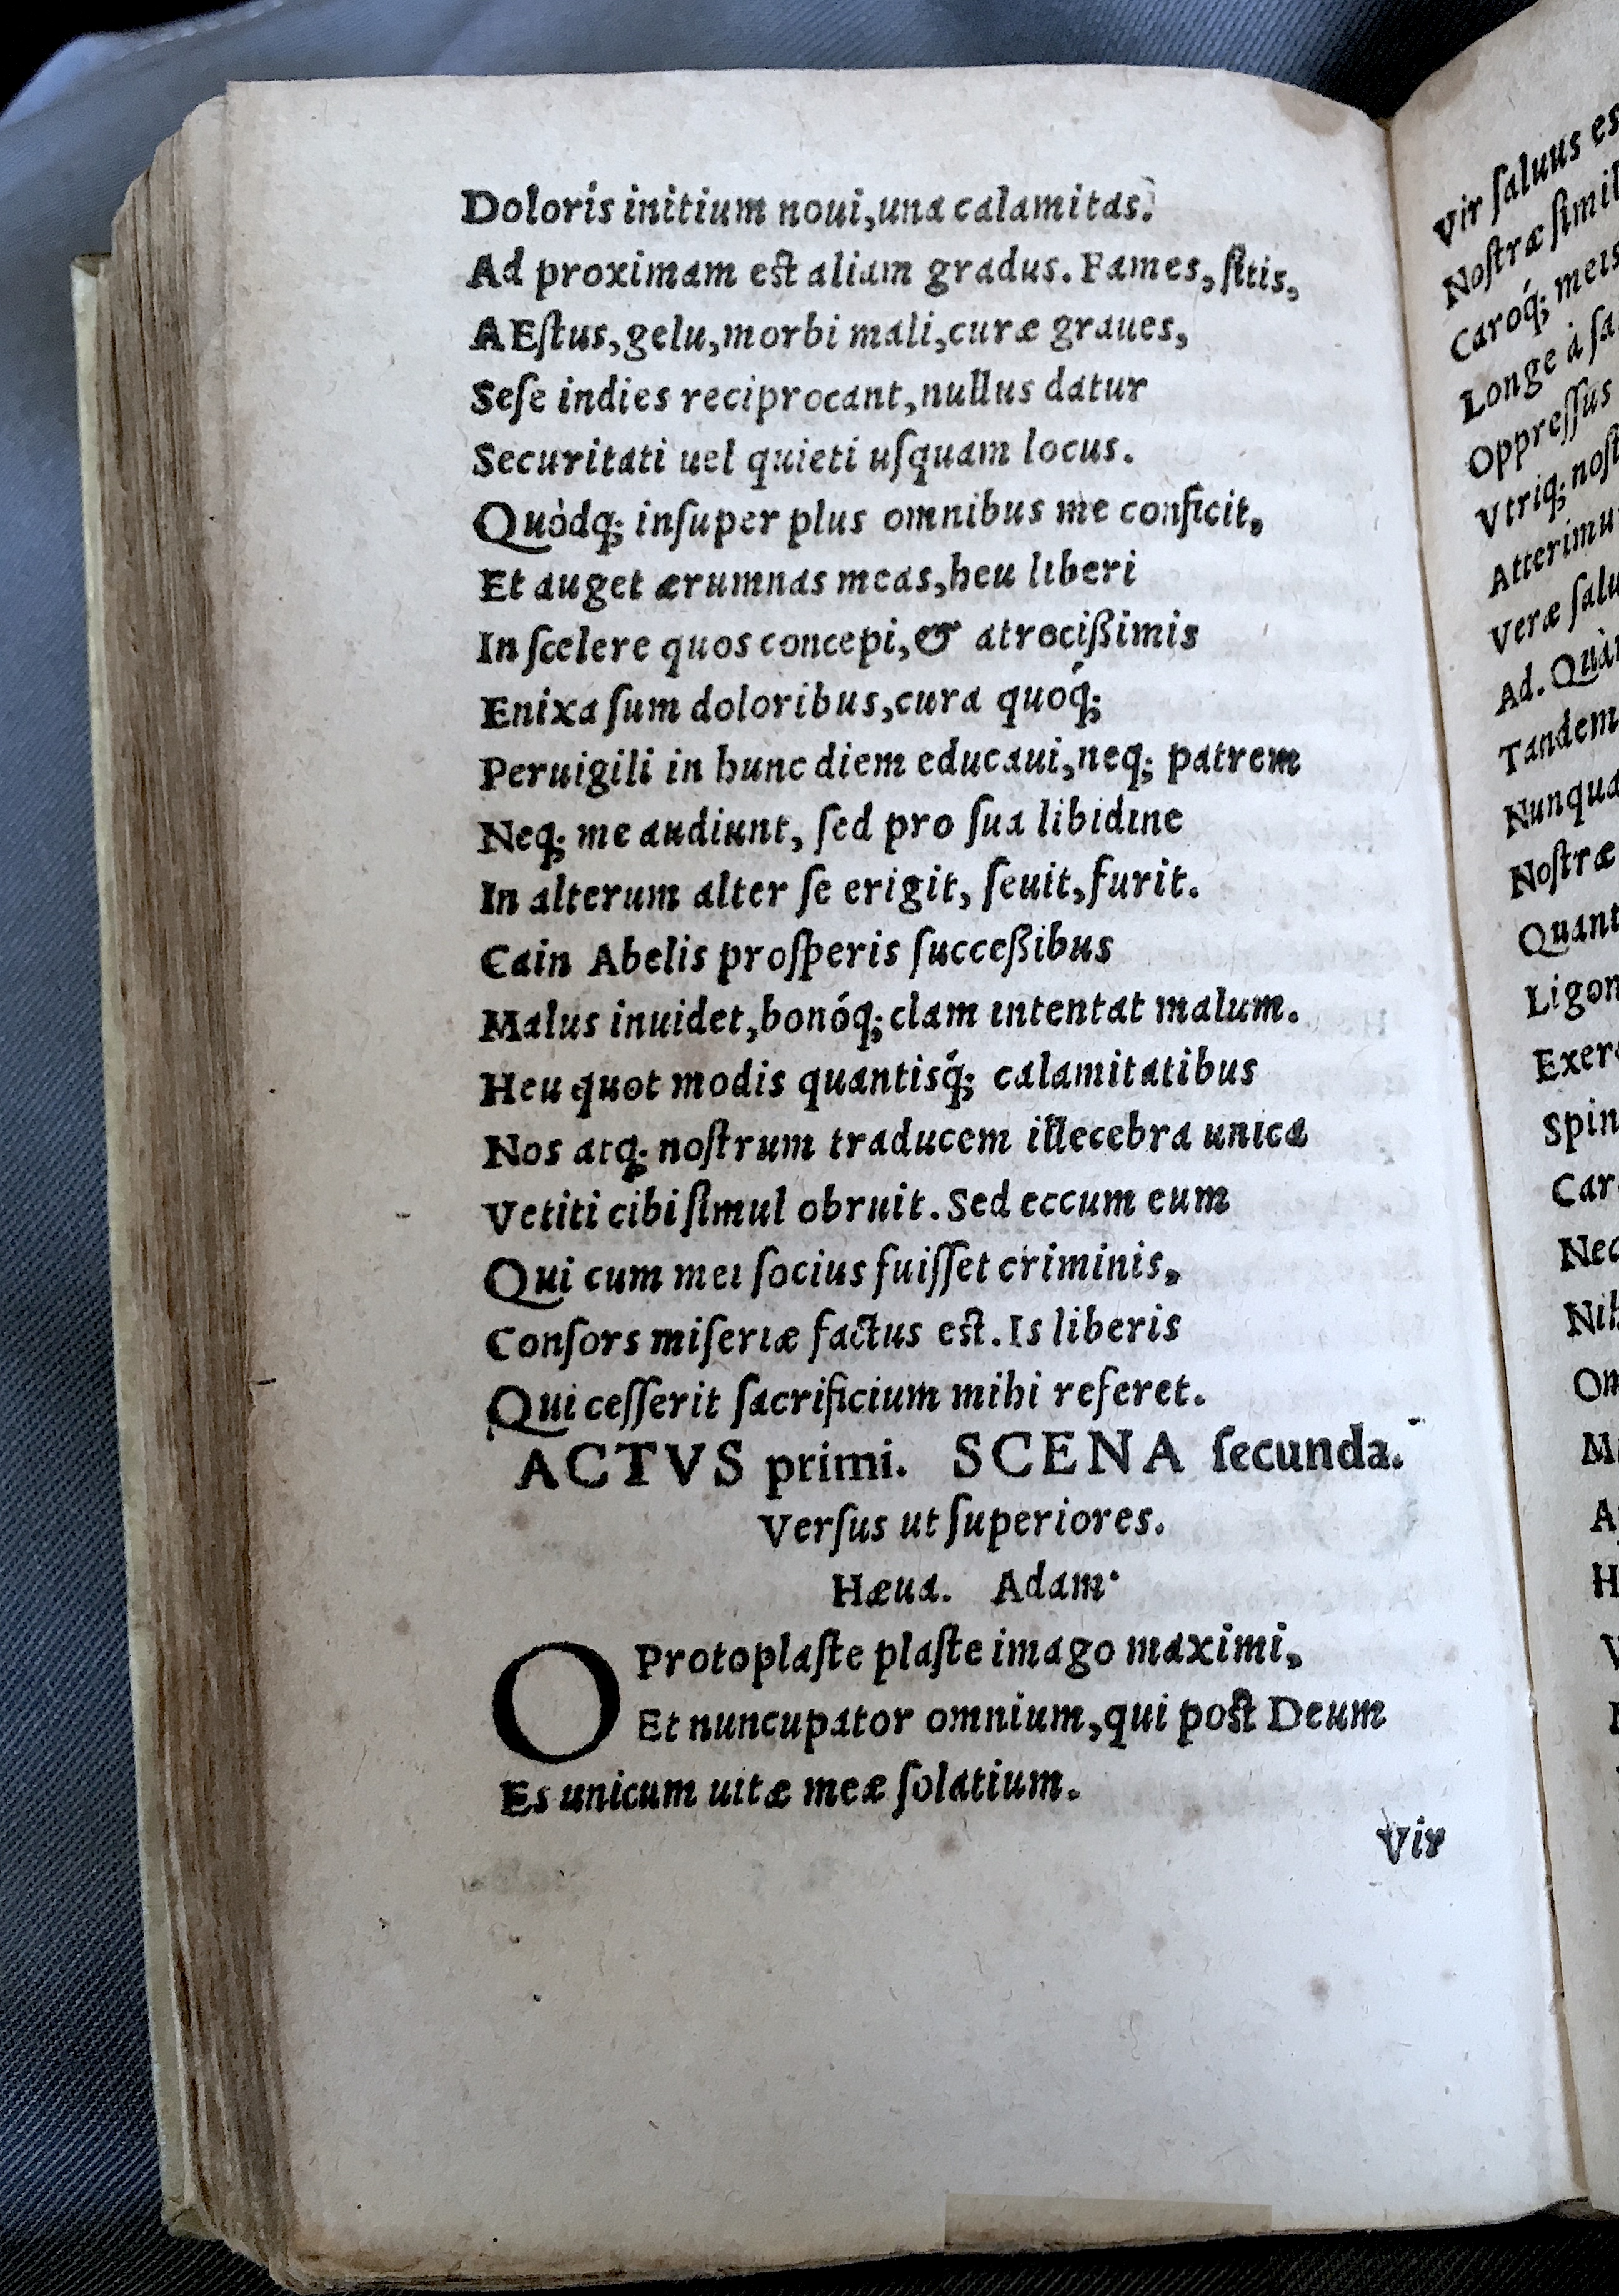 Doloris initium noui,una calamitas.
Ad proximam est aliam gradus. Fames, ſitis,
AEſtus,gelu,morbi mali,curæ graues,
Seſe indies reciprocant,nullus datur
Securitati uel quieti uſquam locus.
Quòdq; inſuper plus omnibus me conficit,
Et auget ærumnas meas,heu liberi
In ſcelere quos concepi,& atrocißimis
Enixa ſum doloribus,cura quoq́;
Peruigili in hunc diem educaui,neq; patrem
Neq; me audiunt, ſed pro ſua libidine
In alterum alter ſe erigit, ſeuit,furit.
Cain Abelis proſperis ſucceßibus
Malus inuidet,bonóq; clam intentat malum.
Heu quot modis quantisq́; calamitatibus
Nos atq; noſtrum traducem illecebra unica
Vetiti cibi ſimul obruit. Sed eccum eum
Qui cum mei ſocius fuiſſet criminis,
Conſors miſeriæ factus est. Is liberis
Qui ceſſerit ſacrificium mihi referet.
ACTVS primi. SCENA ſecunda.
Verſus ut ſuperiores.
Hæua. Adam.
O Protoplaſte plaſte imago maximi,
Et nuncupator omnium,qui post Deum
Es unicum uitæ meæ ſolatium.
Vir
Vir ſaluus es
Noſtræ ſimil
Caroq́; meis
Longe à ſa
Oppreſſus
Vtriq; noſt
Atterimu
Veræ ſalu
Ad. Quàn
Tandem
Nunqua
Noſtræ
Quant
Ligon
Exer
Spin
Car
Nec
Nih
Om